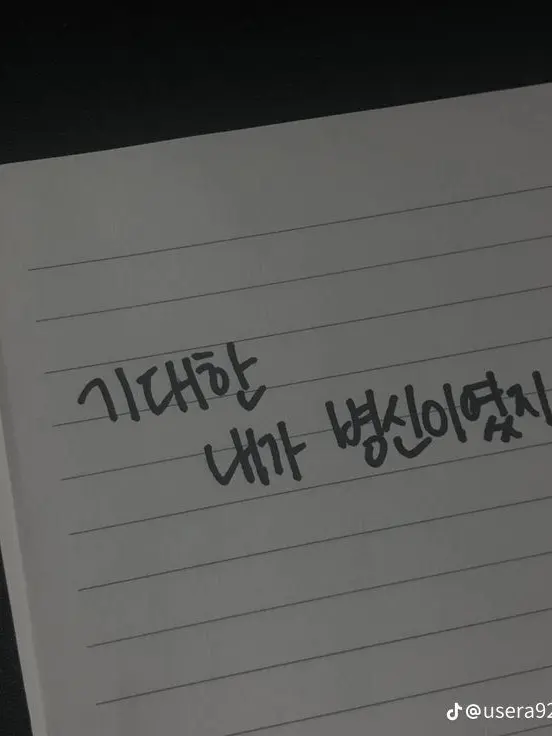 기대한
내가 병신이였지
@usera92